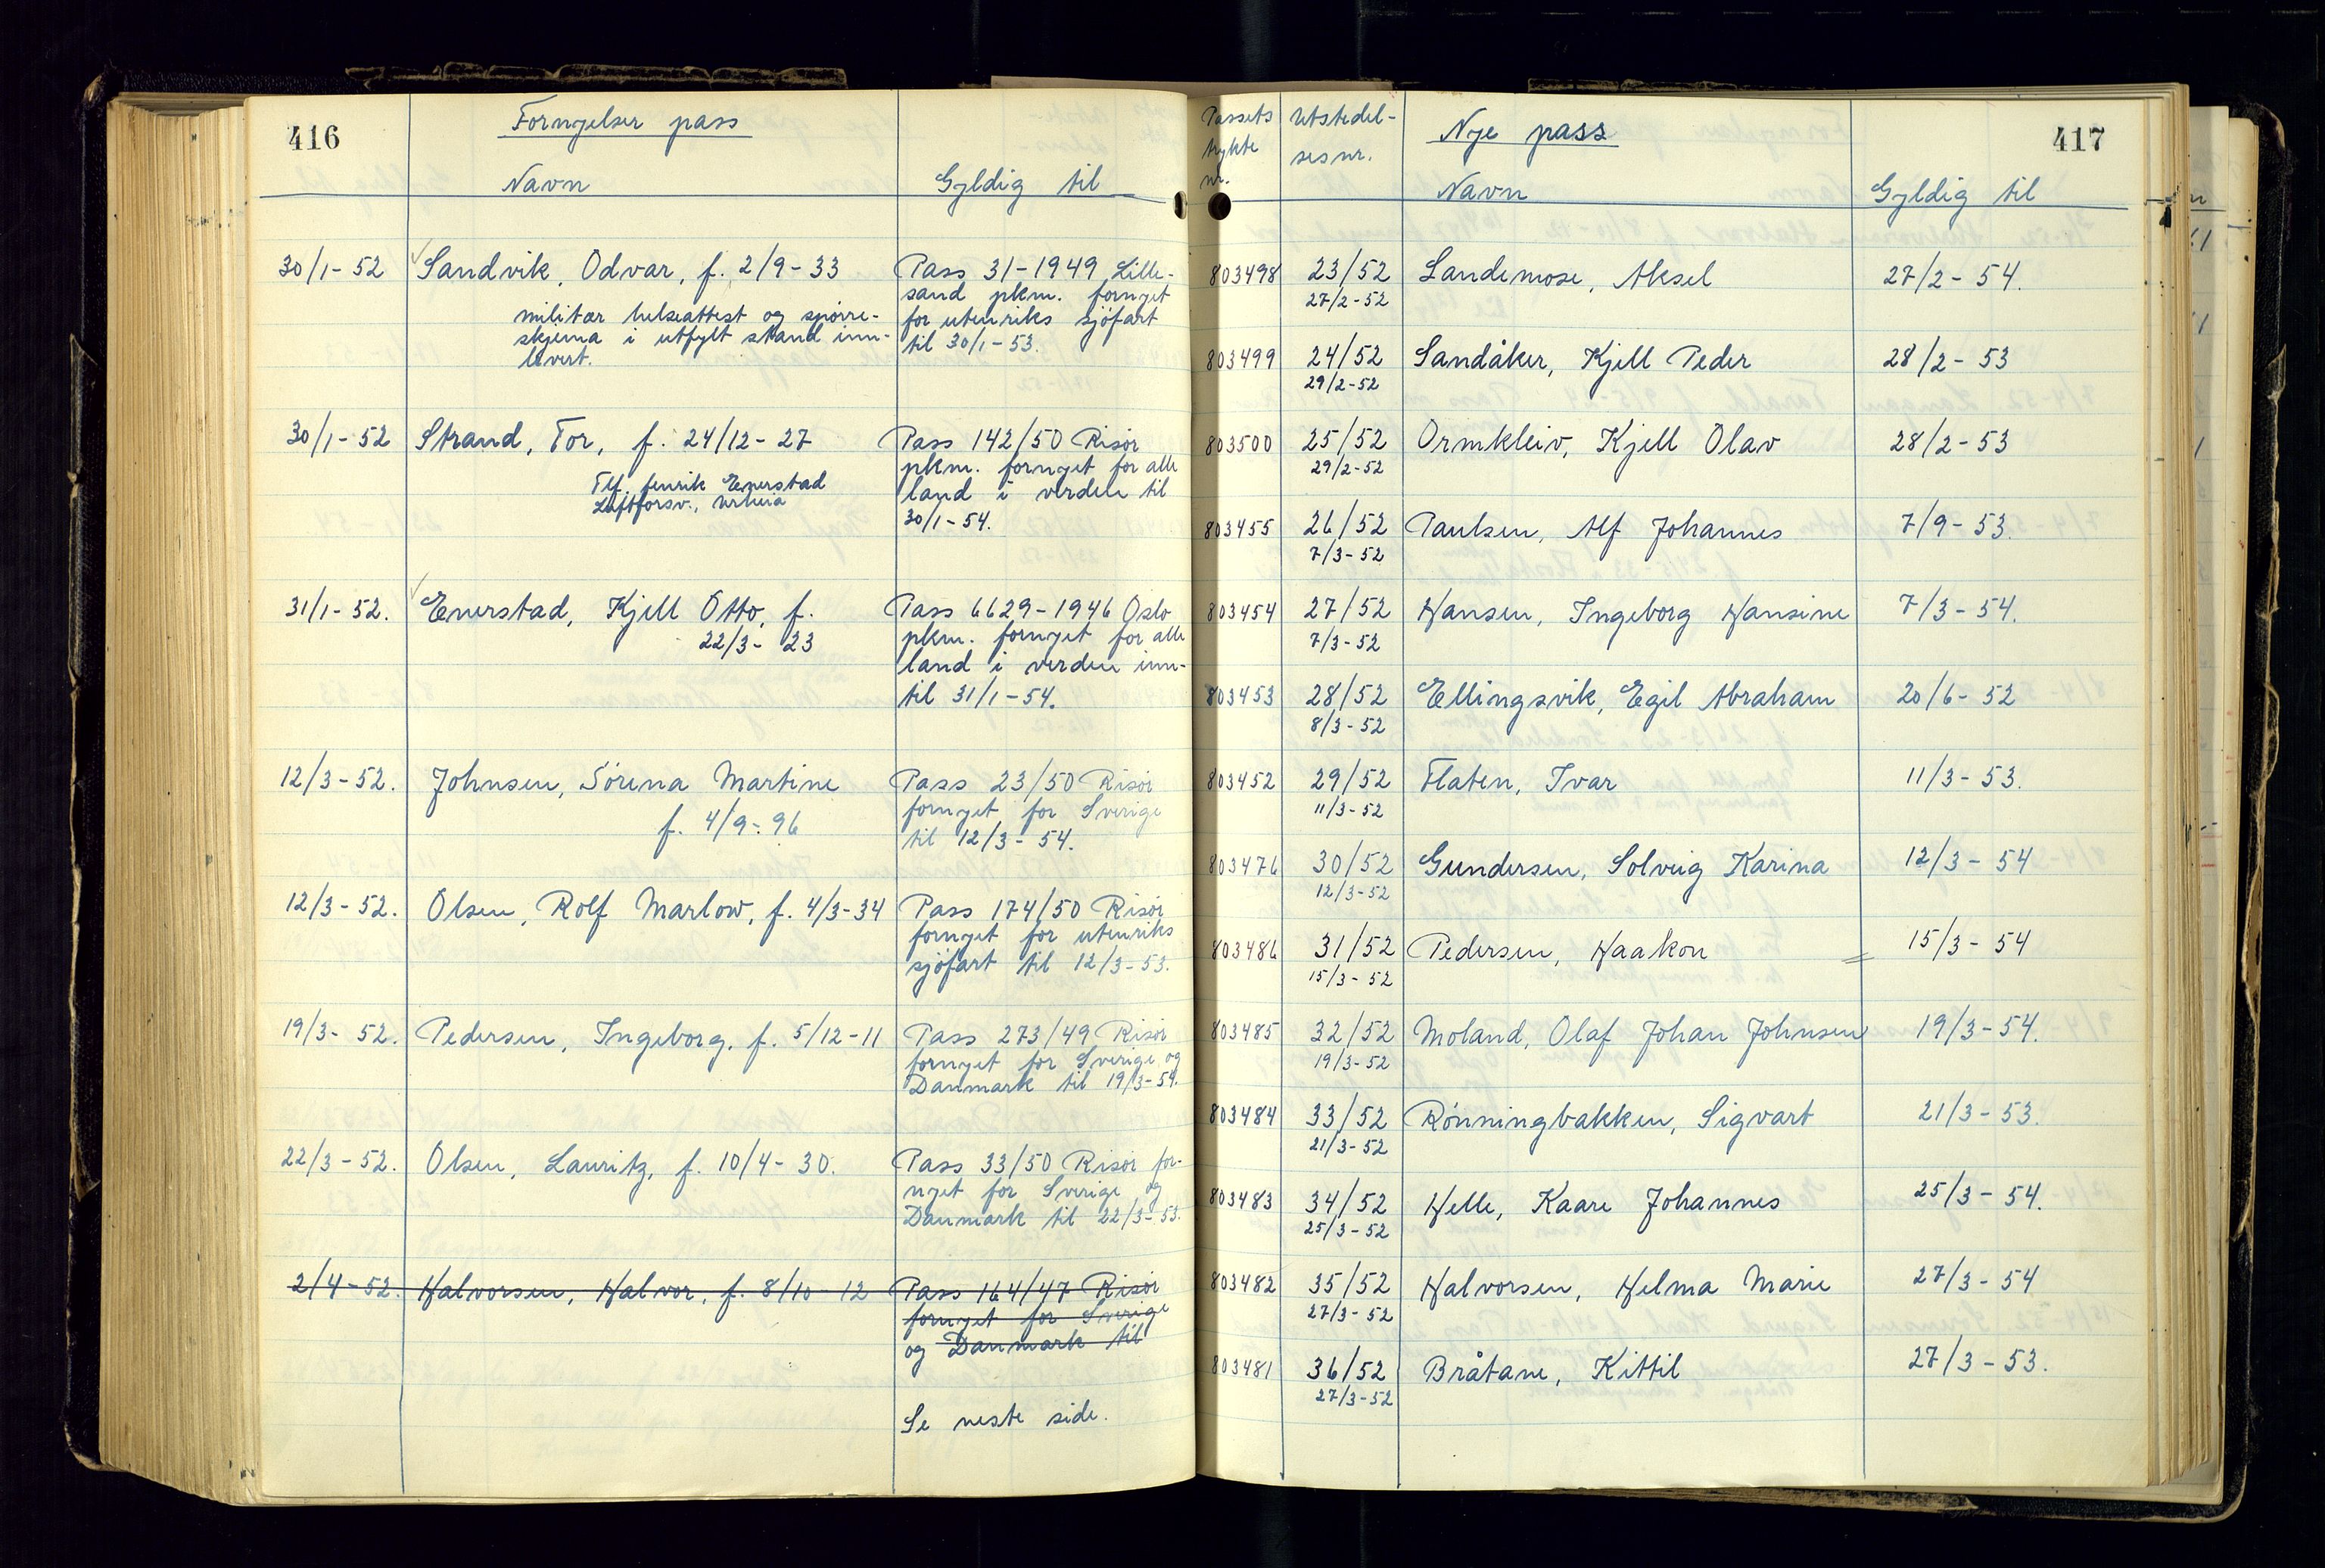 416
Fornyelser pass
Navn
Gyldig til
30/1-52 Sandvik, Odvar, f. 2/9-33
militær helseattest og spørre-
skjema i utfylt stand inn-
levert.
Pass 31-1949 Lille-
sand pkm. fornyet
for utenriks sjøfart
til 30/1-53.
30/1-52 Strand, Tor, f. 24/12-27
Tlf. fenrik Enerstad
Luftforsv.,
Pass 142/50 Risør
pkm. fornyet for alle
land i verden til
30/1-54.
31/1-52. Enerstad, Kjell Otto, f.
22/3-23
Pass 6629-1946 Oslo
pkm. fornyet for alle
land i verden inn-
til 31/1-54.
12/3-52. Johnsen, Sørena Martine
f. 4/9-96
Pass 23/50 Risør
fornyet for Sverige
til 12/3-54.
12/3-52. Olsen, Rolf Marlow, f. 4/3-34
Pass 174/50 Risør
fornyet for utenriks
sjøfart til 12/3-53.
19/3-52. Pedersen, Ingeborg, f. 5/12-11
Pass 273/49 Risør
fornyet for Sverige og
Danmark til 19/3-54.
22/3-52. Olsen, Lauritz, f. 10/4-30.
Pass 33/50 Risør for-
nyet for Sverige og
Danmark til 22/3-53.
2/4-52. Halvorsen, Halvor, f. 8/10-12
Pass 164/47 Risør
fornyet for Sverige
og Danmark til
Se neste side.
417
Passets
trykte
nr.
Utstedel-
sesnr.
Nye pass
Navn
Gyldig til
803498 23/52 Landemose, Aksel 27/2-54.
27/2-52
803499 24/52 Sandåker, Kjell Peder 28/2-53
29/2-52
803500 25/52 Ormkleiv, Kjell Olav 28/2-53
29/2-52
803455 26/52 Paulsen, Alf Johannes 7/9-53.
7/3-52
803454 27/52 Hansen, Ingeborg Hansine 7/3-54.
7/3-52
803453 28/52 Ellingsvik, Egil Abraham 20/6-52
8/3-52
803452 29/52 Flaten, Ivar 11/3-53.
11/3-52
803476 30/52 Gundersen, Solveig Karina 12/3-54
12/3-52
803486 31/52 Pedersen, Haakon = 15/3-54
15/3-52
803485 32/52 Moland, Olaf Johan Johnsen 19/3-54.
19/3-52
803484 33/52 Rønningbakken, Sigvart 21/3-53.
21/3-52
803483 34/52 Helle, Kaare Johannes 25/3-54.
25/3-52
803482 35/52 Halvorsen, Helma Marie 27/3-54
27/3-52
803481 36/52 Bråtane, Kittil 27/3-53.
27/3-52